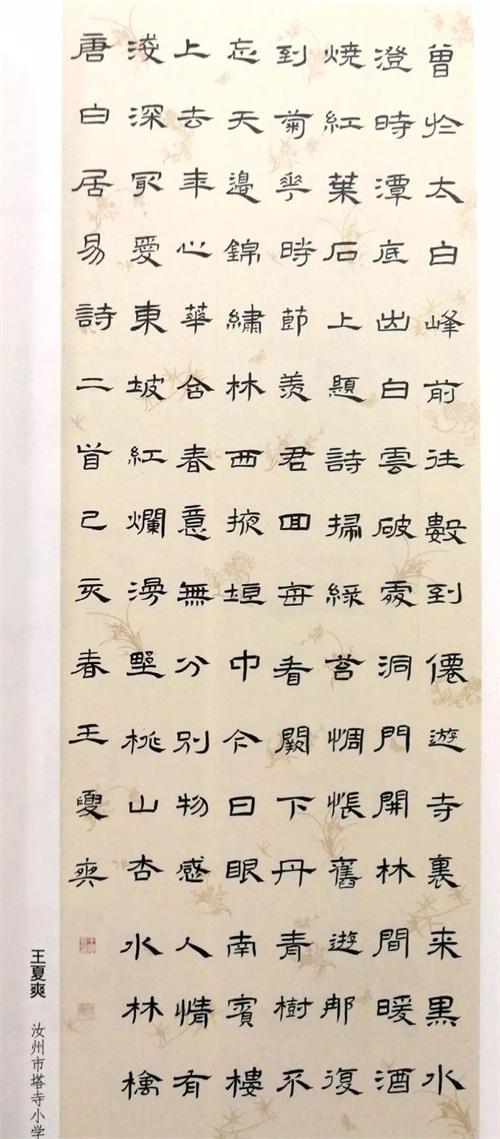 曾於太白峰前往數到僊遊寺裏来黑水
澄時潭底出白雲破處洞門開林間暖酒
燒紅葉石上題詩掃緑苔惆悵舊遊那復
到菊華時節羨君回每看闕下丹青樹不
忘天邊錦繡林西掖垣中今日眼南賓樓
上去年心華含春意無分別物感人情有
淺深最愛東坡紅爛漫野桃山杏水林檎
唐白居易詩二首己亥春王夏爽
王夏爽 汝州市塔寺小学